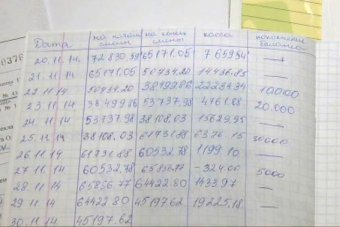 Дата на начало смены на конец смены касса пополнение баланса
20.11.14. 72830.39 65171.05 7659.34 —
21.11.14. 65171.05 50734.20 14436.85 —
22.11.14 50734.20 22239.34 10000
23.11.14 38499.86 53737.98 4761.88 20.000
24.11.14 53737.98 38108.03 15629.95 —
25.11.14 38108.03 61731.88 6376.15 30000
26.11.14 61731.88 60532.78 1199.10 —
27.11.14 60532.78 -324.00 5000
28.11.14 64422.80 1433.97 —
29.11.14 64422.80 45197.62 19225.18 —
30.11.14 45197.62